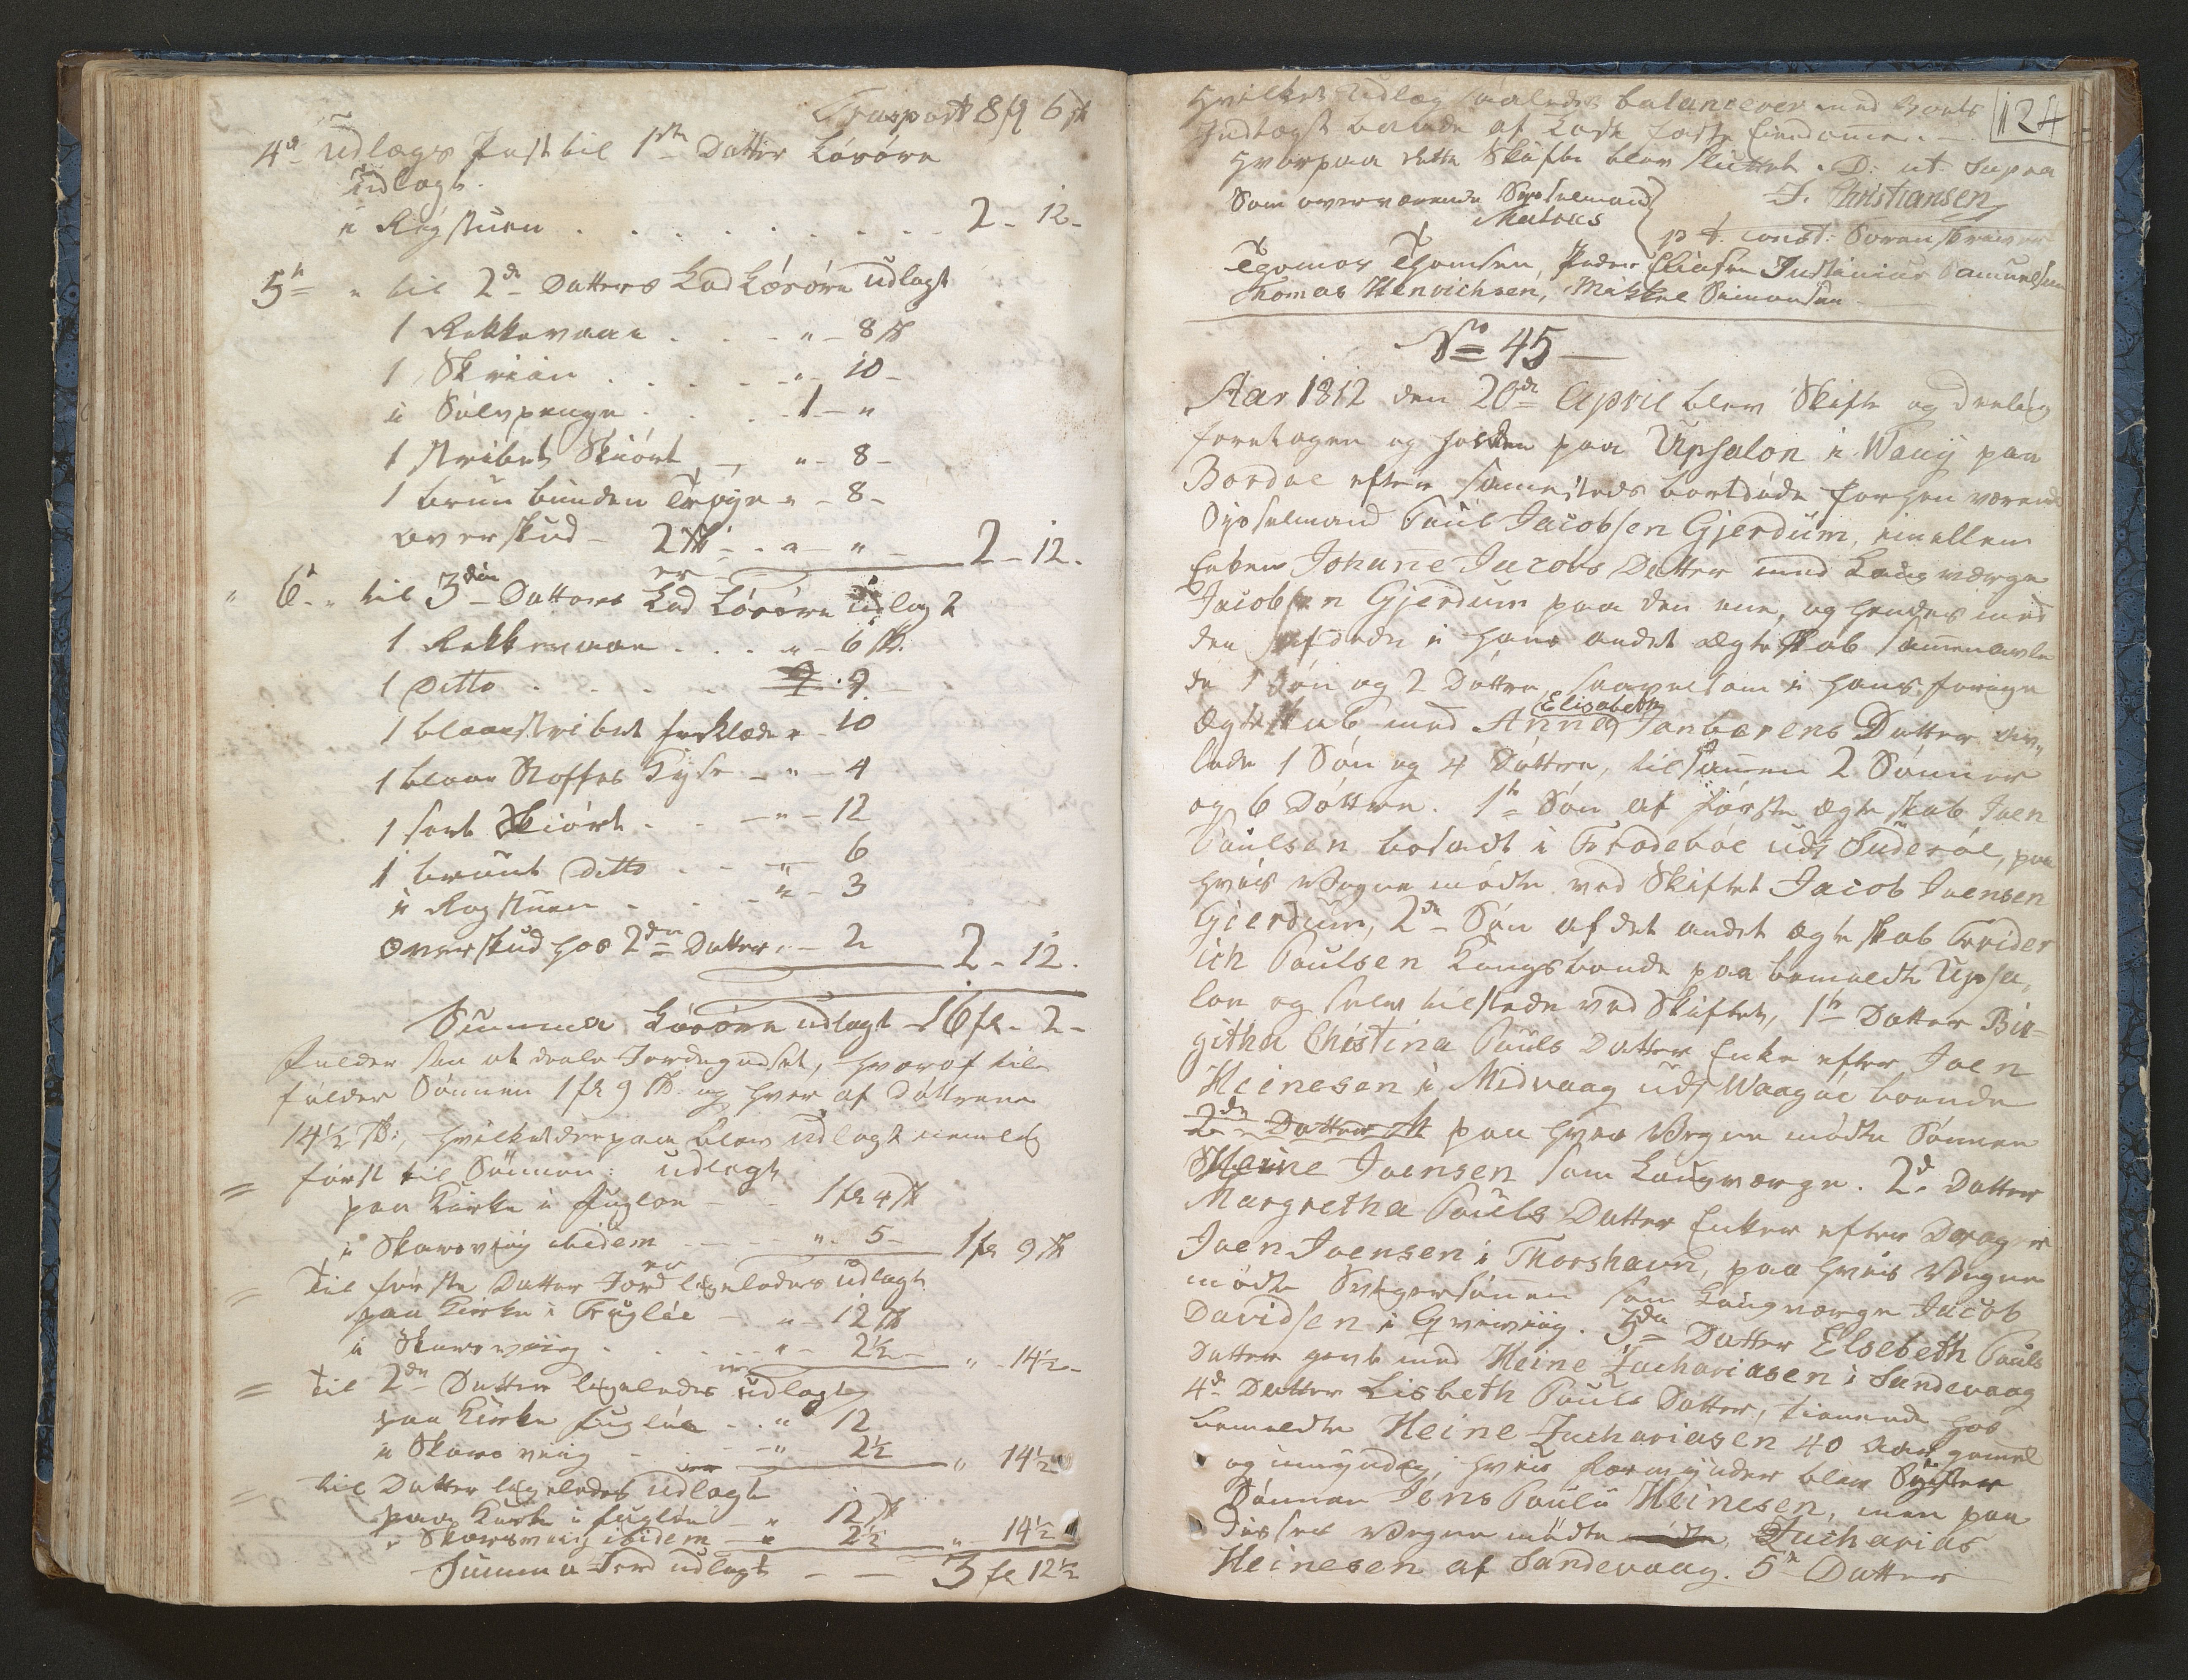 Trasport 8 fl 6 sk
4de Udlægs Post til 1ste Datter Løsøre
Udlagt.
i Røgstuen . . . . . . . . 2 - 12 -
5te " til 2den Datters Lod Løsøre udlagt
1 Rekkevaan . . . " - 8 sk
1 Skrin . . . . . " - 10 -
i Sølvpenge . . . . 1 - "
1 stribet Skiört - " - 8 -
1 brun bunden Trøye " - 8 -
overskud - 2 sk - . " - " -
er 2 - 12.
" 6te " til 3die Datters Lod Løsøre Udlagt
1 Rekkevaan . . . " - 6 sk.
1 Ditto . . . . . 9
1 blaaestribet forklæde " - 10
1 blaae Stoffes Tyse - " - 4
1 sort Skiört . . - " - 12
1 brunt Ditto . . - " 6
i Røgstuen . . . " - 3
overskud hos 2den Datter, - 2 2 - 12.
Summa Løsøre udlagt 16 fl - 2 -
falder saa at deele Jordegodset, hvoraf til-
falder Sønnen 1 fl 9 sk. og hver af Døttrene
14½ sk:, hvilket derpaa blev udlagt nemlig
først til Sønnen: udlagt
paa Kirke i Fugløe - - 1 fl 4 sk
i Skarsviig ibidem - - - " - 5 - 1 fl 9 sk
er
Til første Datter Jord ligeledes udlagt
paa Kirke i Fugløe - " - 12 sk
i Skarsviig . . . . " - 2½ - " - 14½ -
Til 2den Datter ligeledes udlagt
paa Kirke Fugløe . . " 12
i Skarsviig - - " 2½ " 14½
til Datter ligeledes udlagt
paa Kirke i Fugløe - " 12 sk
i Skarsviig ibidem - " 2½ " 14½
Summa Jord udlagt - - 3 fl 12½
124
Hvilket Udlæg saaledes balancerer med Boets
Indtægt baade af Løst faste Eiendomme.
Hvorpaa dette Skifte blev sluttet. D: ut supra
Som overværende Sysselmand J. Christiansen
p t. const: Sorenskriver
Thomas Thomsen, Peder Eliasen Justinius Samuelsen
Thomas Henrichsen, Mikkel Simonsen
No 45
Aar 1812 den 20de April blev Skifte og deeling
foretagen og holden paa Upsalon i Waag paa
Bordøe efter sammesteds bortdøde forhen værende
Sysselmand Poul Jacobsen Gjerdum, imellem
Enken Johanne Jacobs Datter med Laugværge
Jacobsen Gjerdum paa den ene, og hendes med
den afdøde i hans andet ægteskab sammenavle
de 1 Søn og 2 Døttre, saavelsom i hans forrige
Elisabeth
Ægteskab med Anne Janbærens Datter av,,
lede 1 Søn og 4 Døttre, tilsammen 2 Sønner
og 6 Døttre. 1te Søn af første ægteskab Joen
Poulsen bosadt i Frodebøe udj Suderöe, paa
hvis Vegne mødte ved Skiftet Jacob Joensen
Gjerdum, 2den Søn af det andet ægteskab Frider
ich Poulsen Kongsbonde paa bemeldte Upsa,,
lon og selv tilstede ved Skiftet, 1te Datter Bir-
githa Christina Pouls Datter Enke efter Joen
Heinesen i Midvaag udj Waagøe boende
2den Datter M paa hvis Vegne mødte Sønnen
Heine Joensen som Laugværge. 2de Datter
Margretha Pouls Datter Enke efter Dragger
Joen Joensen i Thorshavn, paa hvis Vegne
mødte Svigersønnen som Laugværge Jacob
Davidsen i Qvivviig. 3die Datter Elsebeth Pouls
Datter givt med Heine Zachariasen i Sandevaag
4de Datter Lisbeth Pouls Datter, tienende hos
bemeldte Heine Zachariasen 40 Aar gammel
og umyndig, hvis Formynder blev Syster
Sønnen Jens Pauli Heinesen, men paa
disses Vegne mødte mødte Zacharias
Heinesen af Sandevaag. 5te Datter